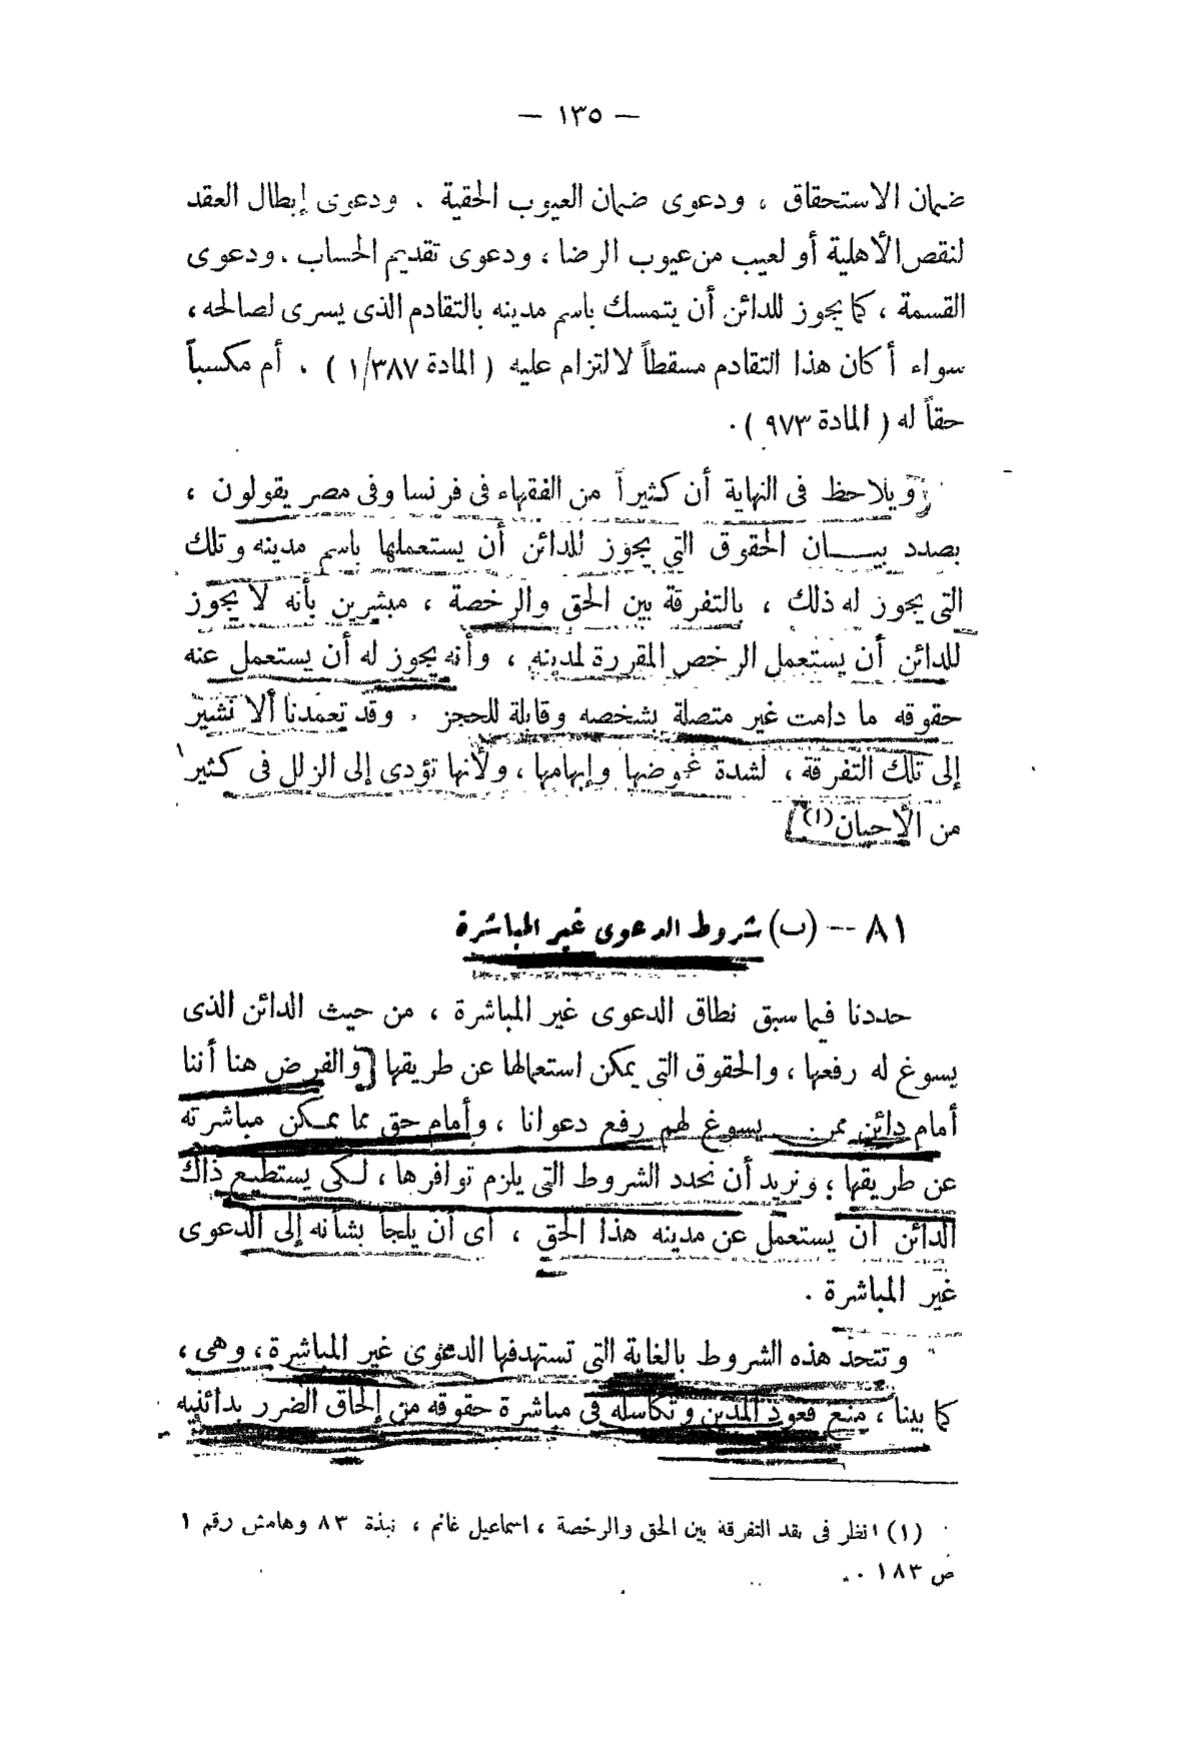 — ١٣٥ —
ضمان الاستحقاق ، ودعوى ضمان العيوب الخفية . ودعوى إبطال العقد
لنقص الأهلية أو لعيب من عيوب الرضا ، ودعوى تقديم الحساب . ودعوى
القسمة ، كما يجوز للدائن أن يتمسك باسم مدينه بالتقادم الذى يسرى لصالحه ،
سواء أكان هذا التقادم مسقطاً لالتزام عليه ( المادة ١/٣٨٧ ) ، أم مكسباً
حقاً له ( المادة ٩٧٣ ) .
ويلاحظ فى النهاية أن كثيراً من الفقهاء فى فرنسا وفى مصر يقولون ،
بصدد بيــان الحقوق التي يجوز للدائن أن يستعملها باسم مدينه وتلك
التى يجوز له ذلك ، بالتفرقة بين الحق والرخصة ، مبشرين بأنه لا يجوز
للدائن أن يستعمل الرخص المقررة لمدينه ، وأنه يجوز له أن يستعمل عنه
حقوقه ما دامت غير متصلة بشخصه وقابلة للحجز . وقد تعمدنا ألا نشير
إلى تلك التفرقة ، لشدة غموضها وإبهامها ، ولأنها تؤدى إلى الزلل فى كثير
من الأحيان (١)
٨١ -- (ب) شروط الدعوى غير المباشرة
حددنا فيما سبق نطاق الدعوى غير المباشرة ، من حيث الدائن الذى
يسوغ له رفعها ، والحقوق التى يمكن استعمالها عن طريقها [والفرض هنا أننا
أمام دائن ممن يسوغ لهم رفع دعوانا ، وأمام حق مما يمكن مباشرته
عن طريقها ؛ ونريد أن نحدد الشروط التى يلزم توافرها ، لـكى يستطيع ذاك
الدائن أن يستعمل عن مدينه هذا الحق ، أى أن يلجأ بشأنه إلى الدعوى
غير المباشرة .
وتتحد هذه الشروط بالغاية التى تستهدفها الدعوى غير المباشرة ، وهى ،
كما بينا ، منع قعود المدين وتكاسله فى مباشرة حقوقه من إلحاق الضرر بدائنيه
(١) انظر فى نقد التفرقة بين الحق والرخصة ، اسماعيل غانم ، نبذة ٨٣ وهامش رقم ١
ص ١٨٣ .